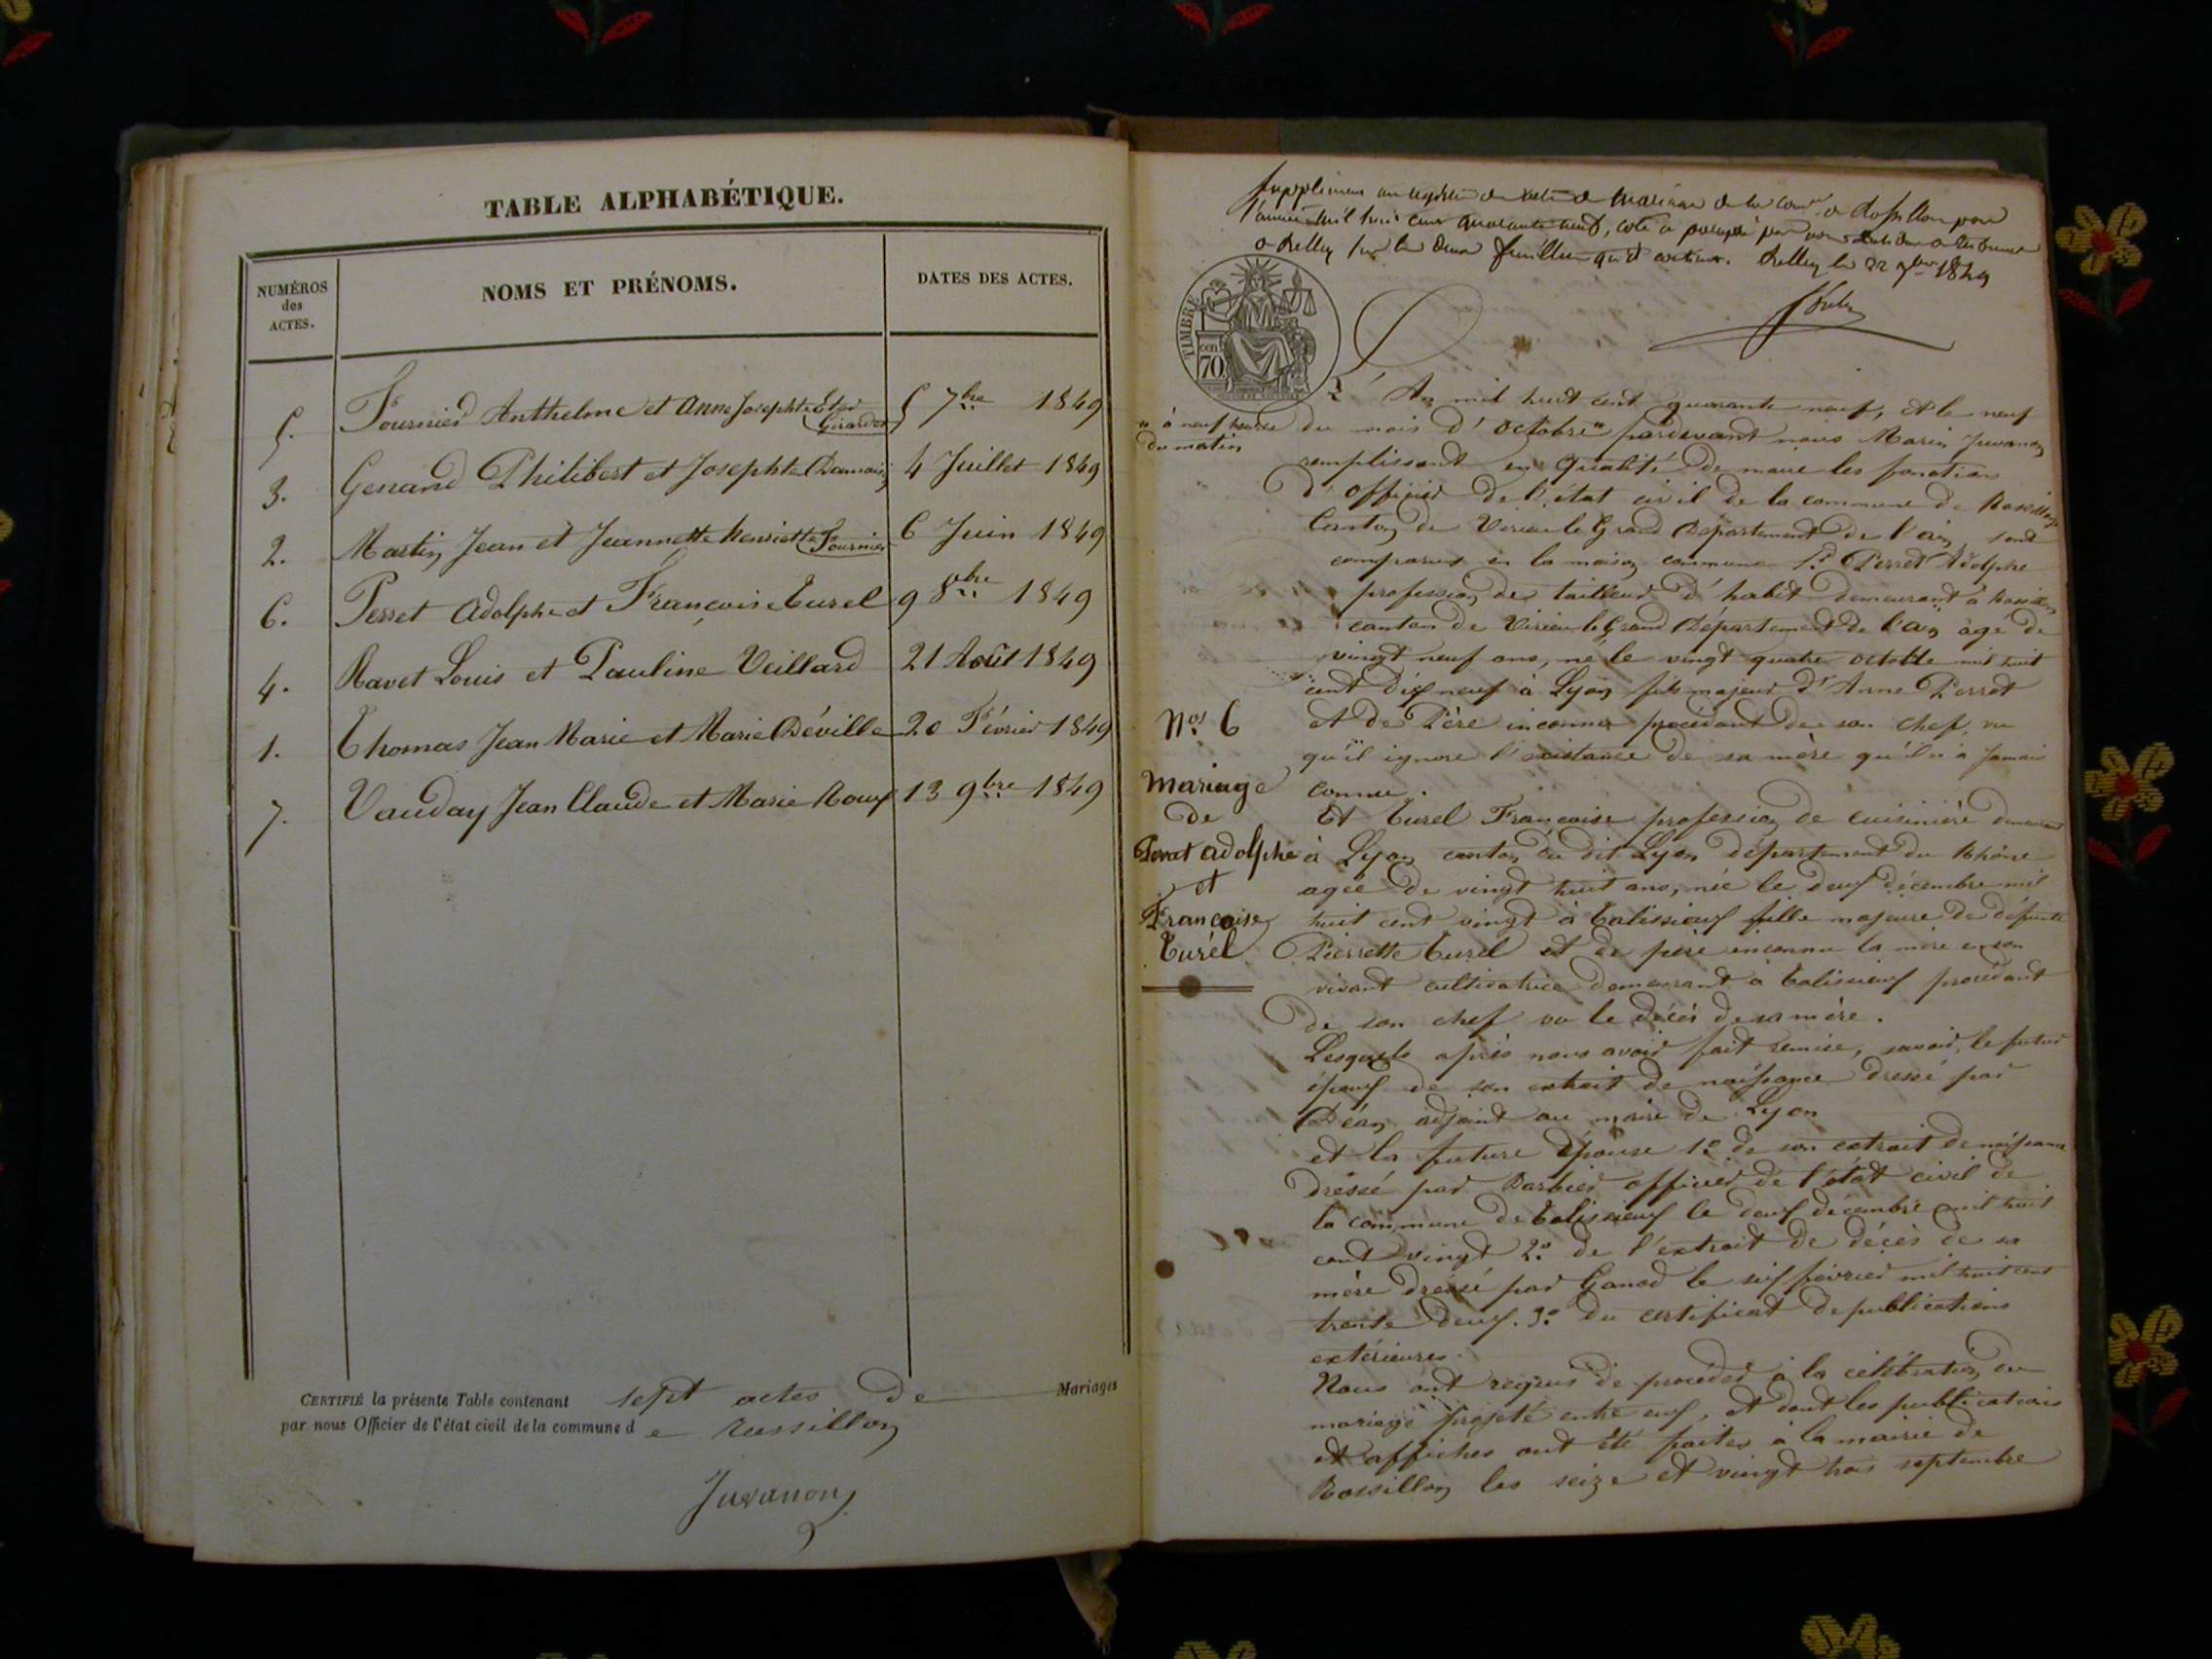 TABLE ALPHABÉTIQUE.
NUMÉROS des ACTES.
NOMS ET PRÉNOMS.
DATES DES ACTES.
5. Fournier Anthelme et Anne Josephte 5 7bre 1849
3. Genand Philibert et Josephte 4 Juillet 1849
2. Martin Jean et Jeannette henriette Fournier 6 Juin 1849
6. Perret Adolphe et Françoise Turel 9 8bre 1849
4. Ravet Louis et Pauline Veillard 21 Août 1849
1. Thomas Jean Marie et Marie Déville 20 Février 1849
7. Vauday Jean Claude et Marie Roux 13 9bre 1849
CERTIFIÉ la présente Table contenant sept actes de Mariages
par nous Officier de l'état civil de la commune d e Rossillon
Juvanon
Supplément au registre de mariage de la comne de Rossillon pour
l'année mil huit cent quarante neuf, coté et paraphé par
Belley le 22 7bre 1849
TIMBRE
70 cen
L'An mil huit cent quarante neuf, et le neuf
" à neuf heures du matin
du mois d'octobre " pardevant nous Marin Juvanon
remplissant en qualité de maire les fonctions
d'officier de l'état civil de la commune de Rossillon
Canton de Virieu le Grand Département de l'ain, sont
comparus en la maison commune Sr. Perret Adolphe
profession de tailleur d'habit demeurant à Rossillon
canton de Virieu le Grand Département de l'ain âgé de
vingt neuf ans, né le vingt quatre octobre mil huit
cent dix neuf à Lyon fils majeur d'Anne Perret
et de Père inconnu procédant de son chef, vu
qu'il ignore l'existance de sa mère qu'il n'a Jamais
connue.
Nos 6
Mariage
de
Perret adolphe
et
Françoise
Turel
Et Turel Françoise profession de cuisinière demeurant
à Lyon canton du dit Lyon département du Rhône
agée de vingt huit ans, née le deux décembre mil
huit cent vingt à Talissieux fille majeure de défunte
Pierrette Turel et de père inconnu la mère en son
vivant cultivatrice demeurant à Talissieux procédant
de son chef vu le décès de sa mère.
Lesquels après nous avoir fait remise, savoir, le futur
époux de son extrait de naissance dressé par
adjoint au maire de Lyon
et la future épouse 1o de son extrait de naissance
dressé par Barbier officier de l'état civil de
la commune de Talissieux le deux décembre mil huit
cent vingt 2o de l'extrait de décès de sa
mère dressé par le six février mil huit cent
trente deux. 3o du certificat de publications
extérieures.
Nous ont requis de procéder à la célébration du
mariage projeté entre eux, et dont les publications
et affiches ont été faites à la mairie de
Rossillon les seize et vingt trois septembre